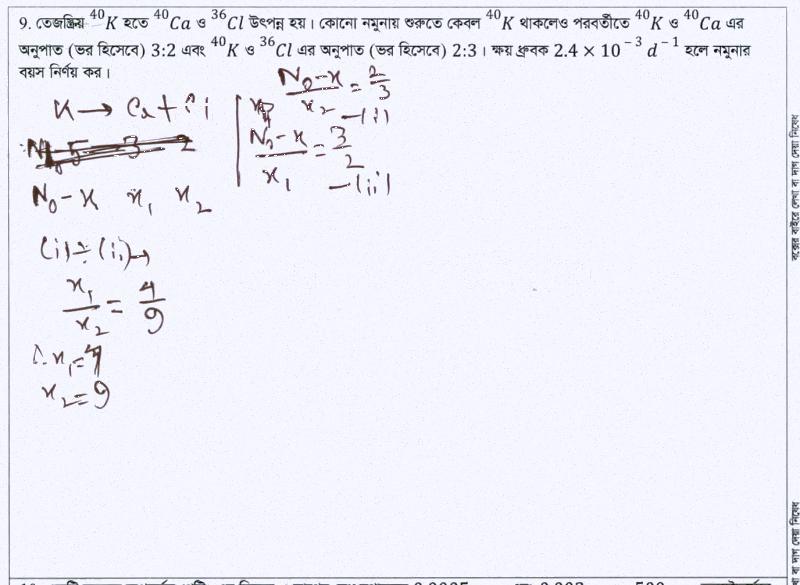 9. তেজস্ক্রিয় ⁴⁰K হতে ⁴⁰Ca ও ³⁶Cl উৎপন্ন হয়। কোনো নমুনায় শুরুতে কেবল ⁴⁰K থাকলেও পরবর্তীতে ⁴⁰K ও ⁴⁰Ca এর
অনুপাত (ভর হিসেবে) 3:2 এবং ⁴⁰K ও ³⁶Cl এর অনুপাত (ভর হিসেবে) 2:3। ক্ষয় ধ্রুবক 2.4 × 10⁻³ d⁻¹ হলে নমুনার
বয়স নির্ণয় কর।
K → Ca + Cl
N₀-x x₁ x₂
(N₀-x)/x₂ = 2/3 —(i)
(N₀-x)/x₁ = 3/2 —(ii)
(i)÷(ii)→
x₁/x₂ = 4/9
∴ x₁=4
x₂=9
বক্সের বাইরে লেখা বা দাগ দেয়া নিষেধ
বা দাগ দেয়া নিষেধ